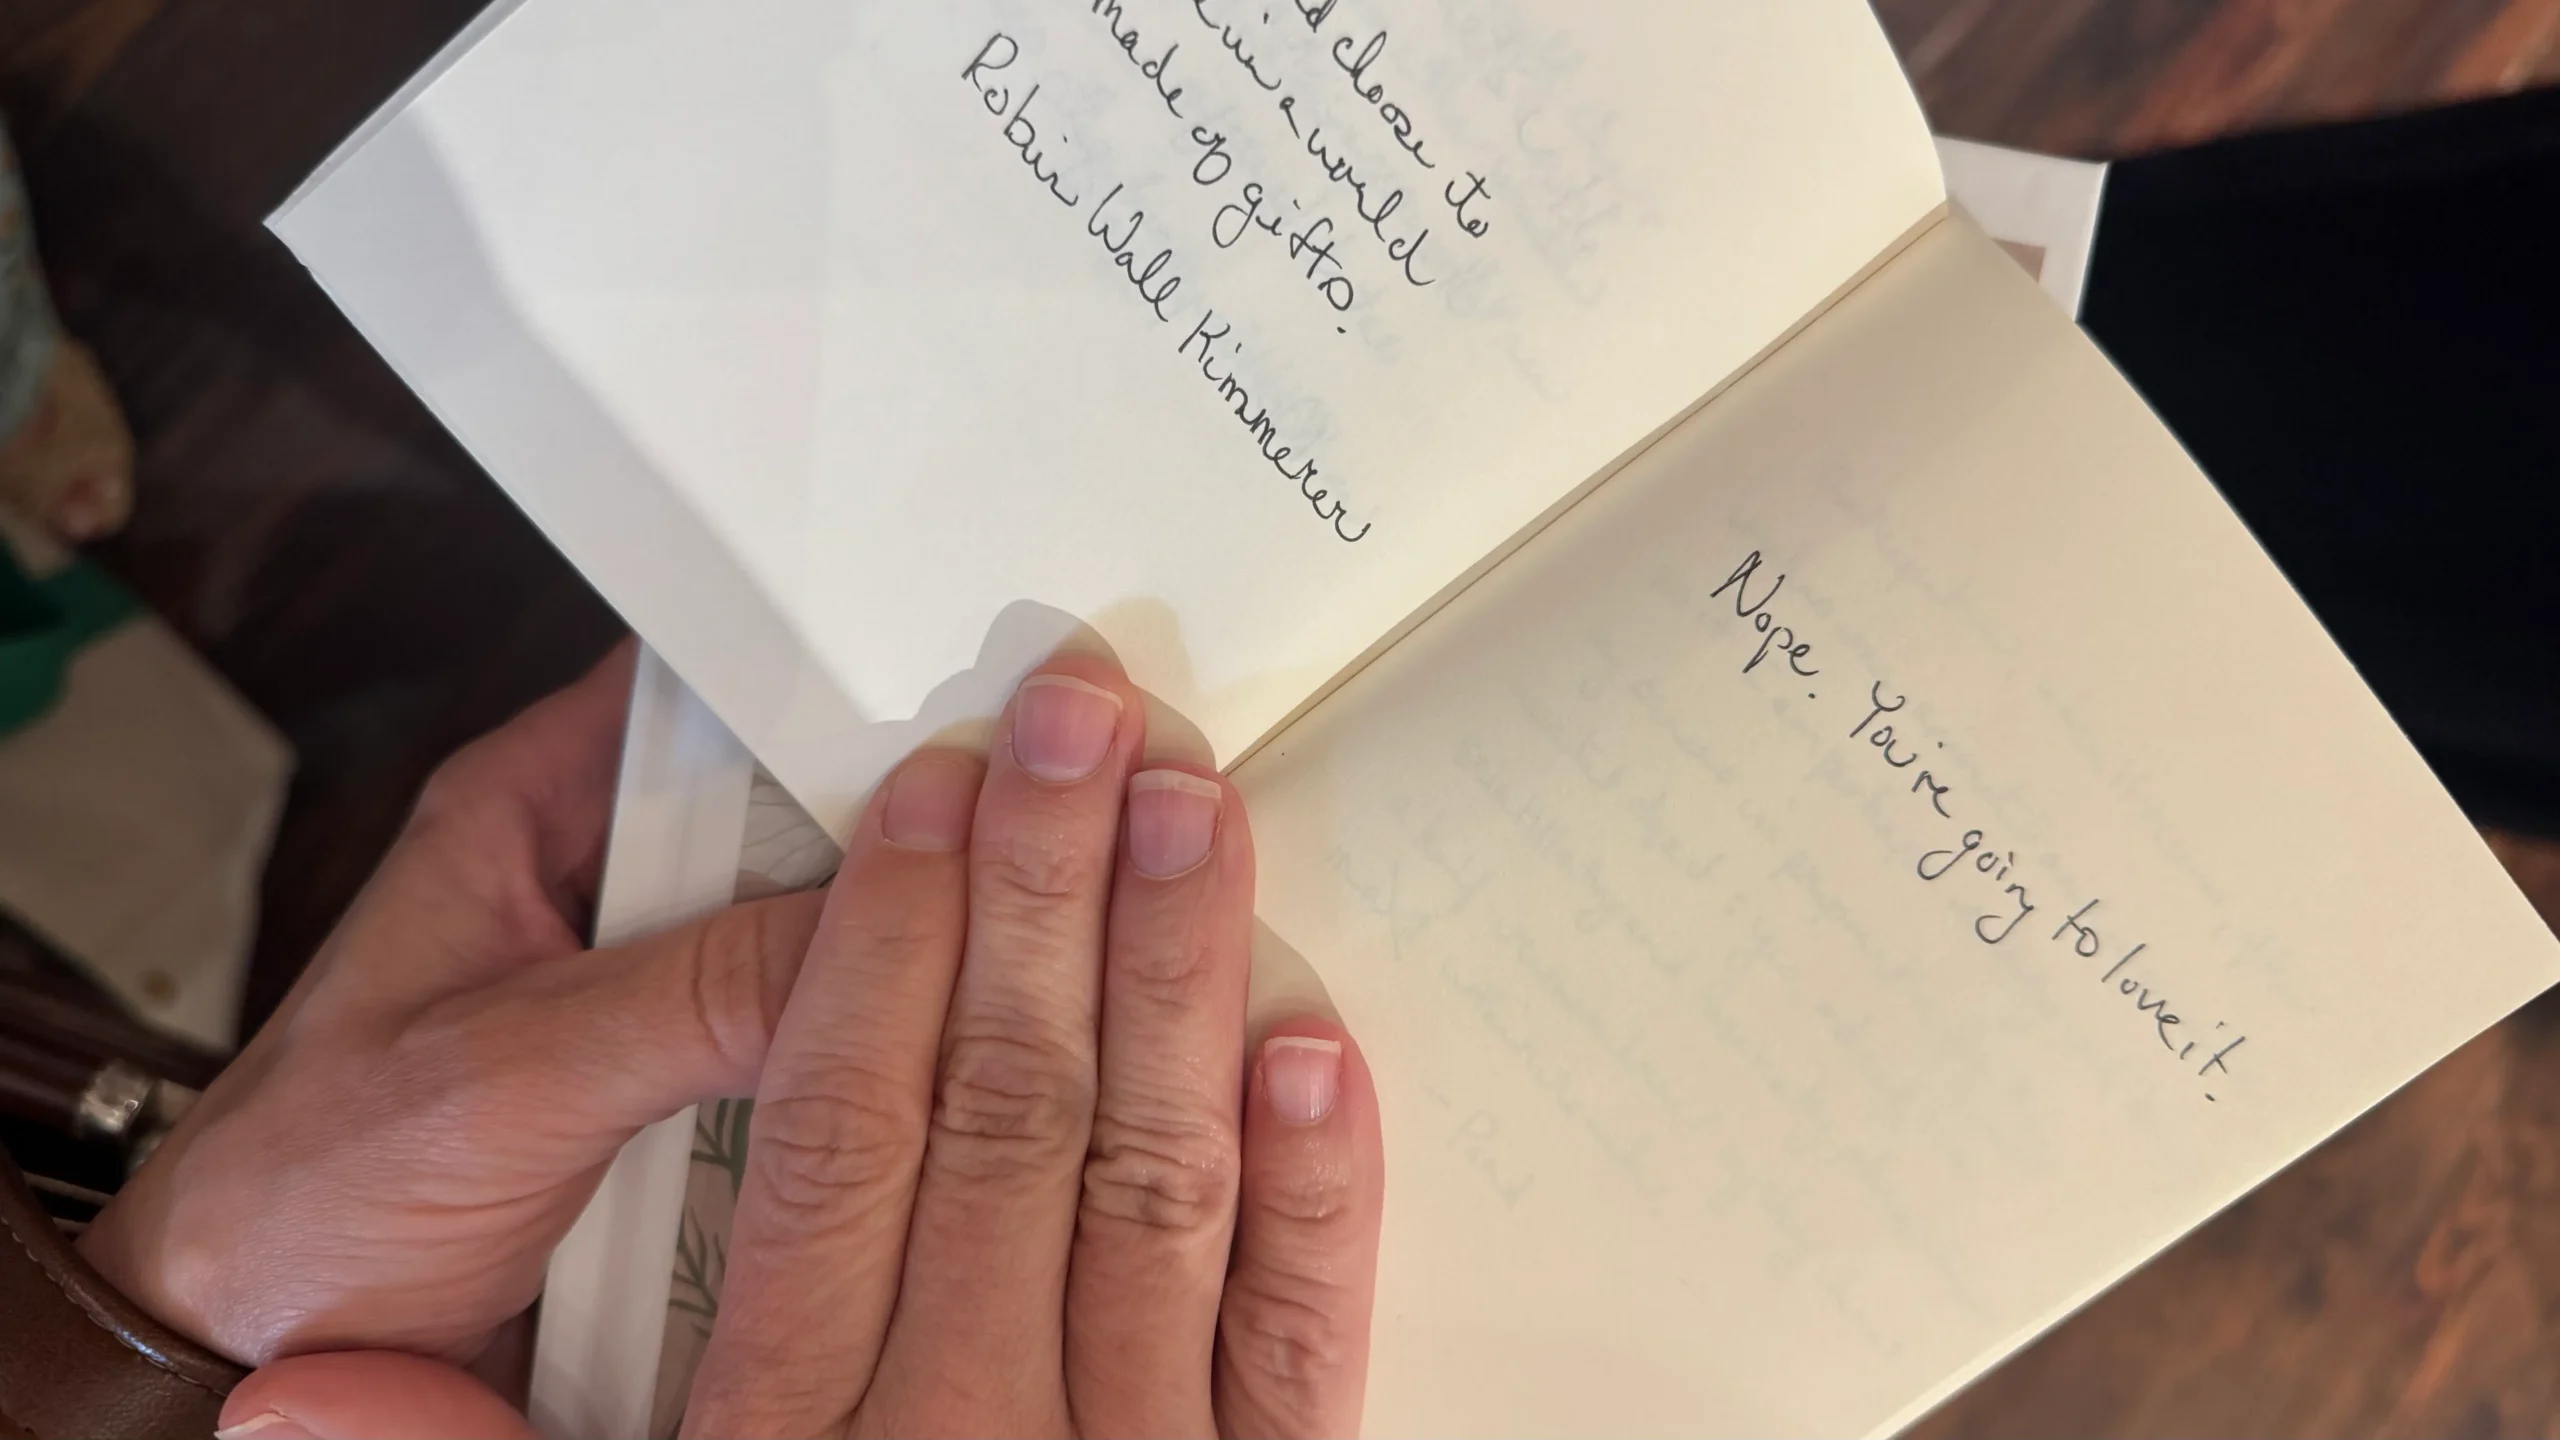 choose to
in a world
made of gifts.
Robin Wall Kimmerer
Nope. You're going to love it.